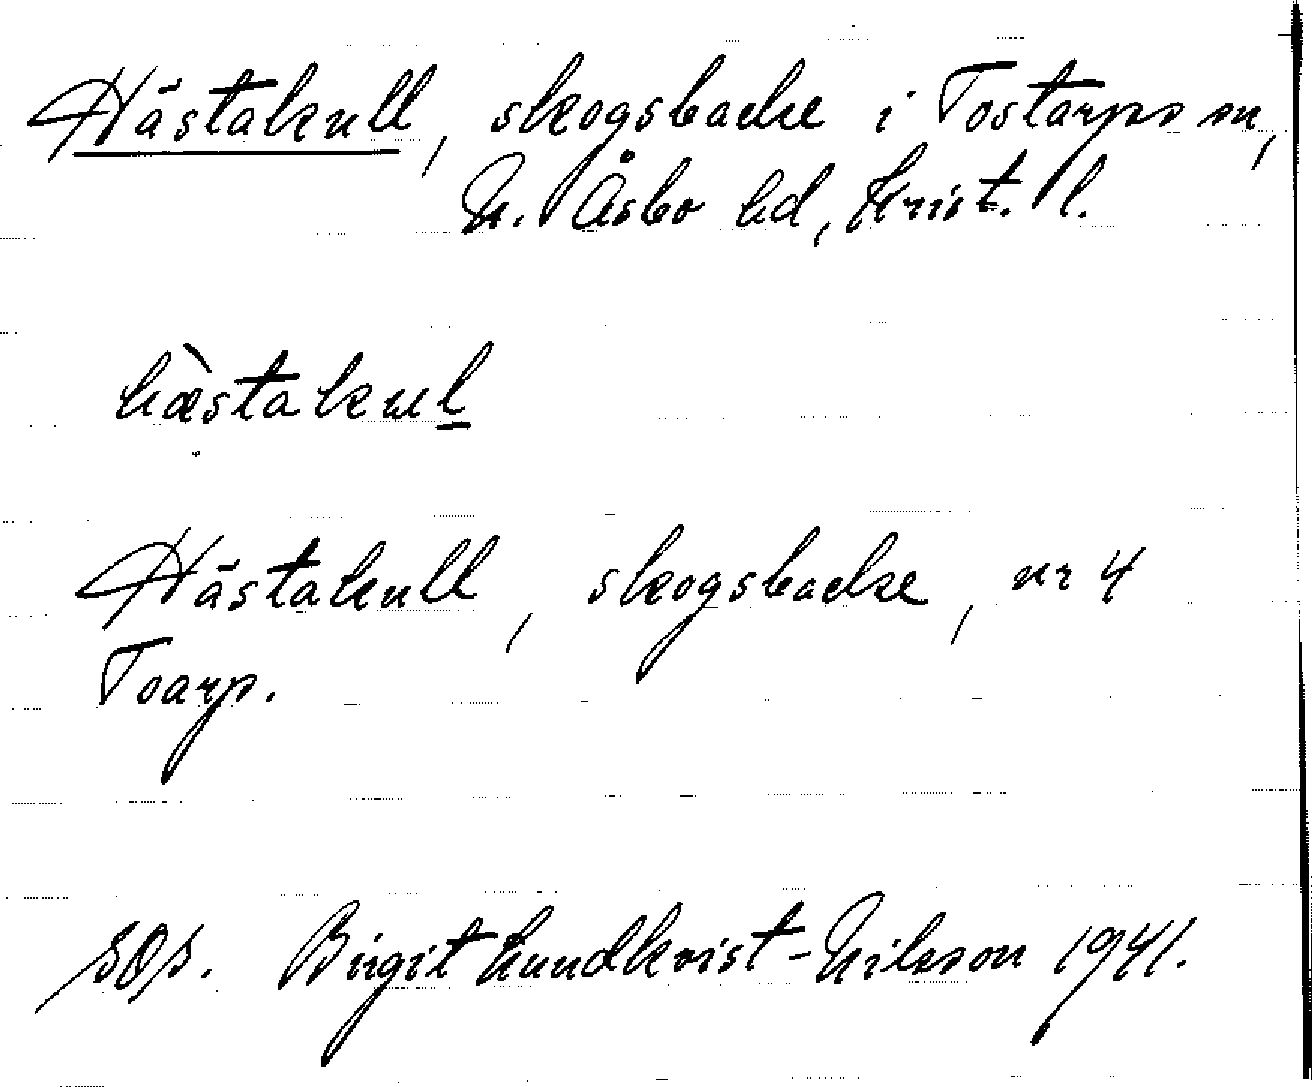 Hästakull, skogsbacke i Tostarps sn,
N. Åsbo hd, Krist. l.
hæ̀stakul
Hästakull, skogsbacke, nr 4
Toarp.
SOS. Birgit Lundkvist-Nilsson 1941.